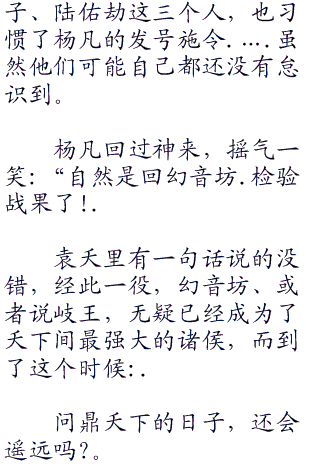 子、陆佑劫这三个人，也习
惯了杨凡的发号施令.….虽
然他们可能自己都还没有怠
识到。
杨凡回过神来，摇气一
笑：“自然是回幻音坊.检验
战果了!.
袁天里有一句话说的没
错，经此一役，幻音坊、或
者说岐王，无疑已经成为了
天下间最强大的诸侯，而到
了这个时候:.
问鼎天下的日子，还会
遥远吗?。